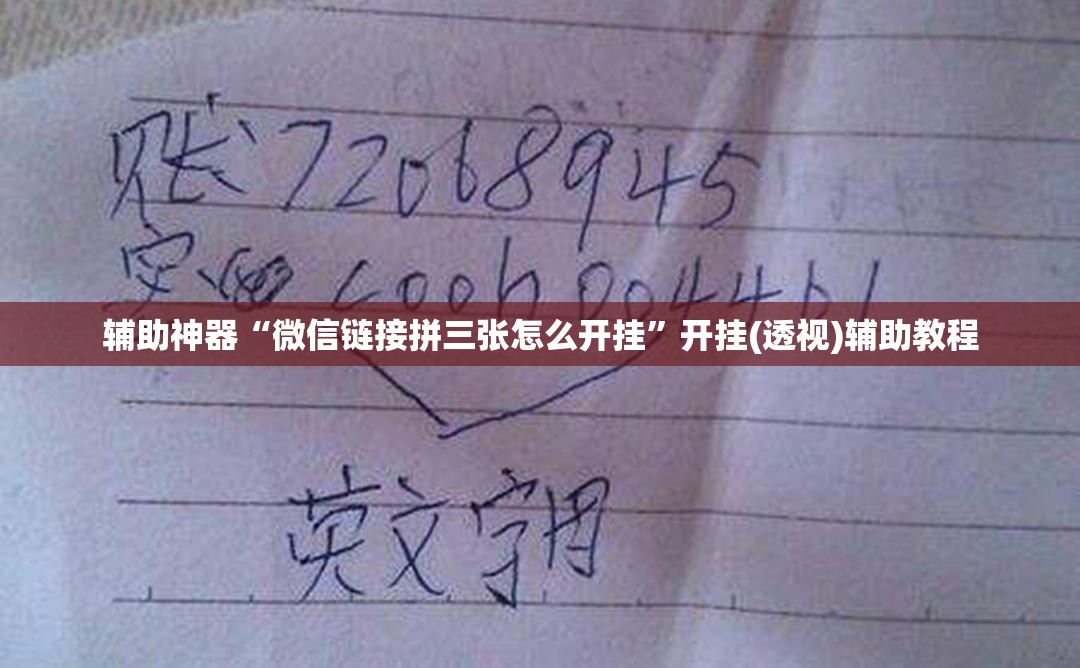 账：72068945
密码 coob004461
辅助神器“微信链接拼三张怎么开挂”开挂(透视)辅助教程
英文字母